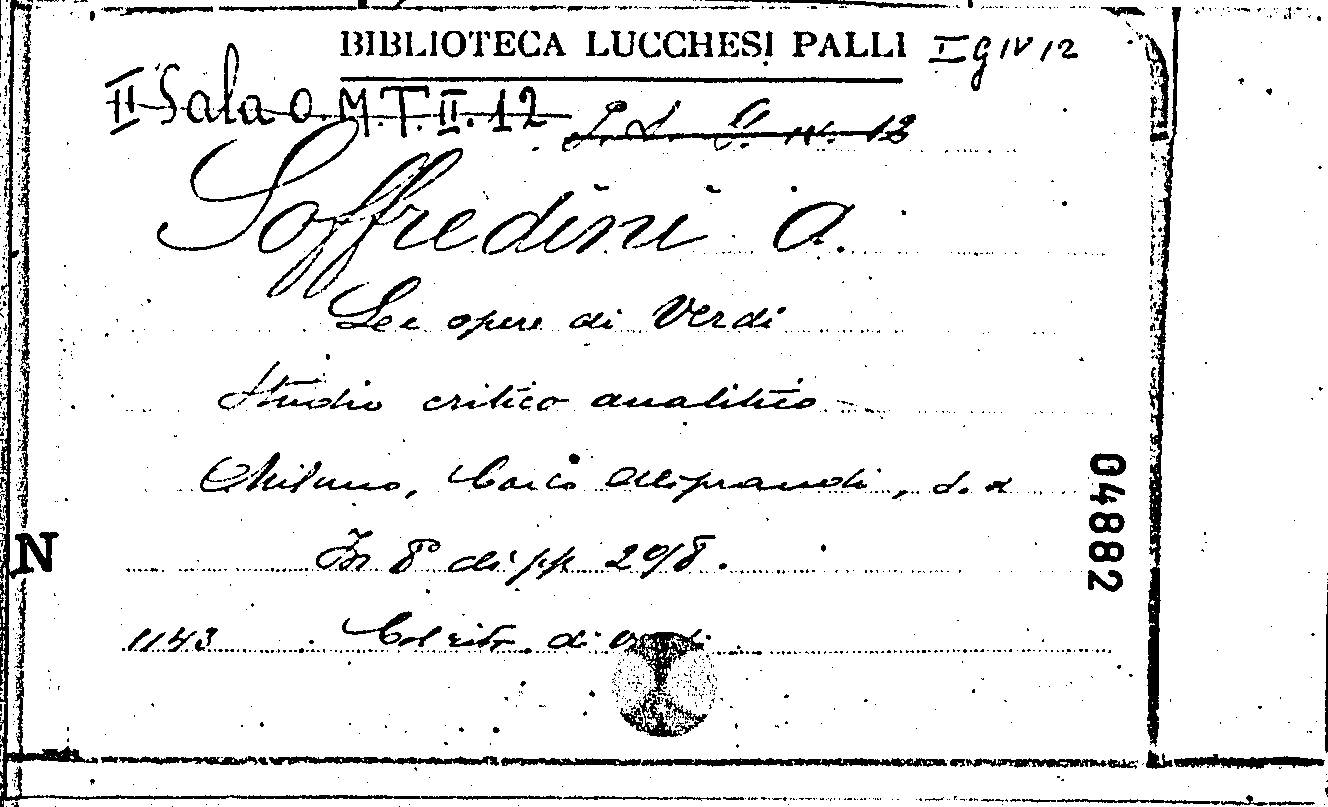 BIBLIOTECA LUCCHESI PALLI I G IV 12
II Sala O. M. T. II. 12 G. IV. 12
Soffredini A.
Le opere di Verdi
Studio critico analitico
Milano, Carlo Aliprandi, s. a
In 8° di pp 298.
1143 Col ritr. di Verdi
N
04882